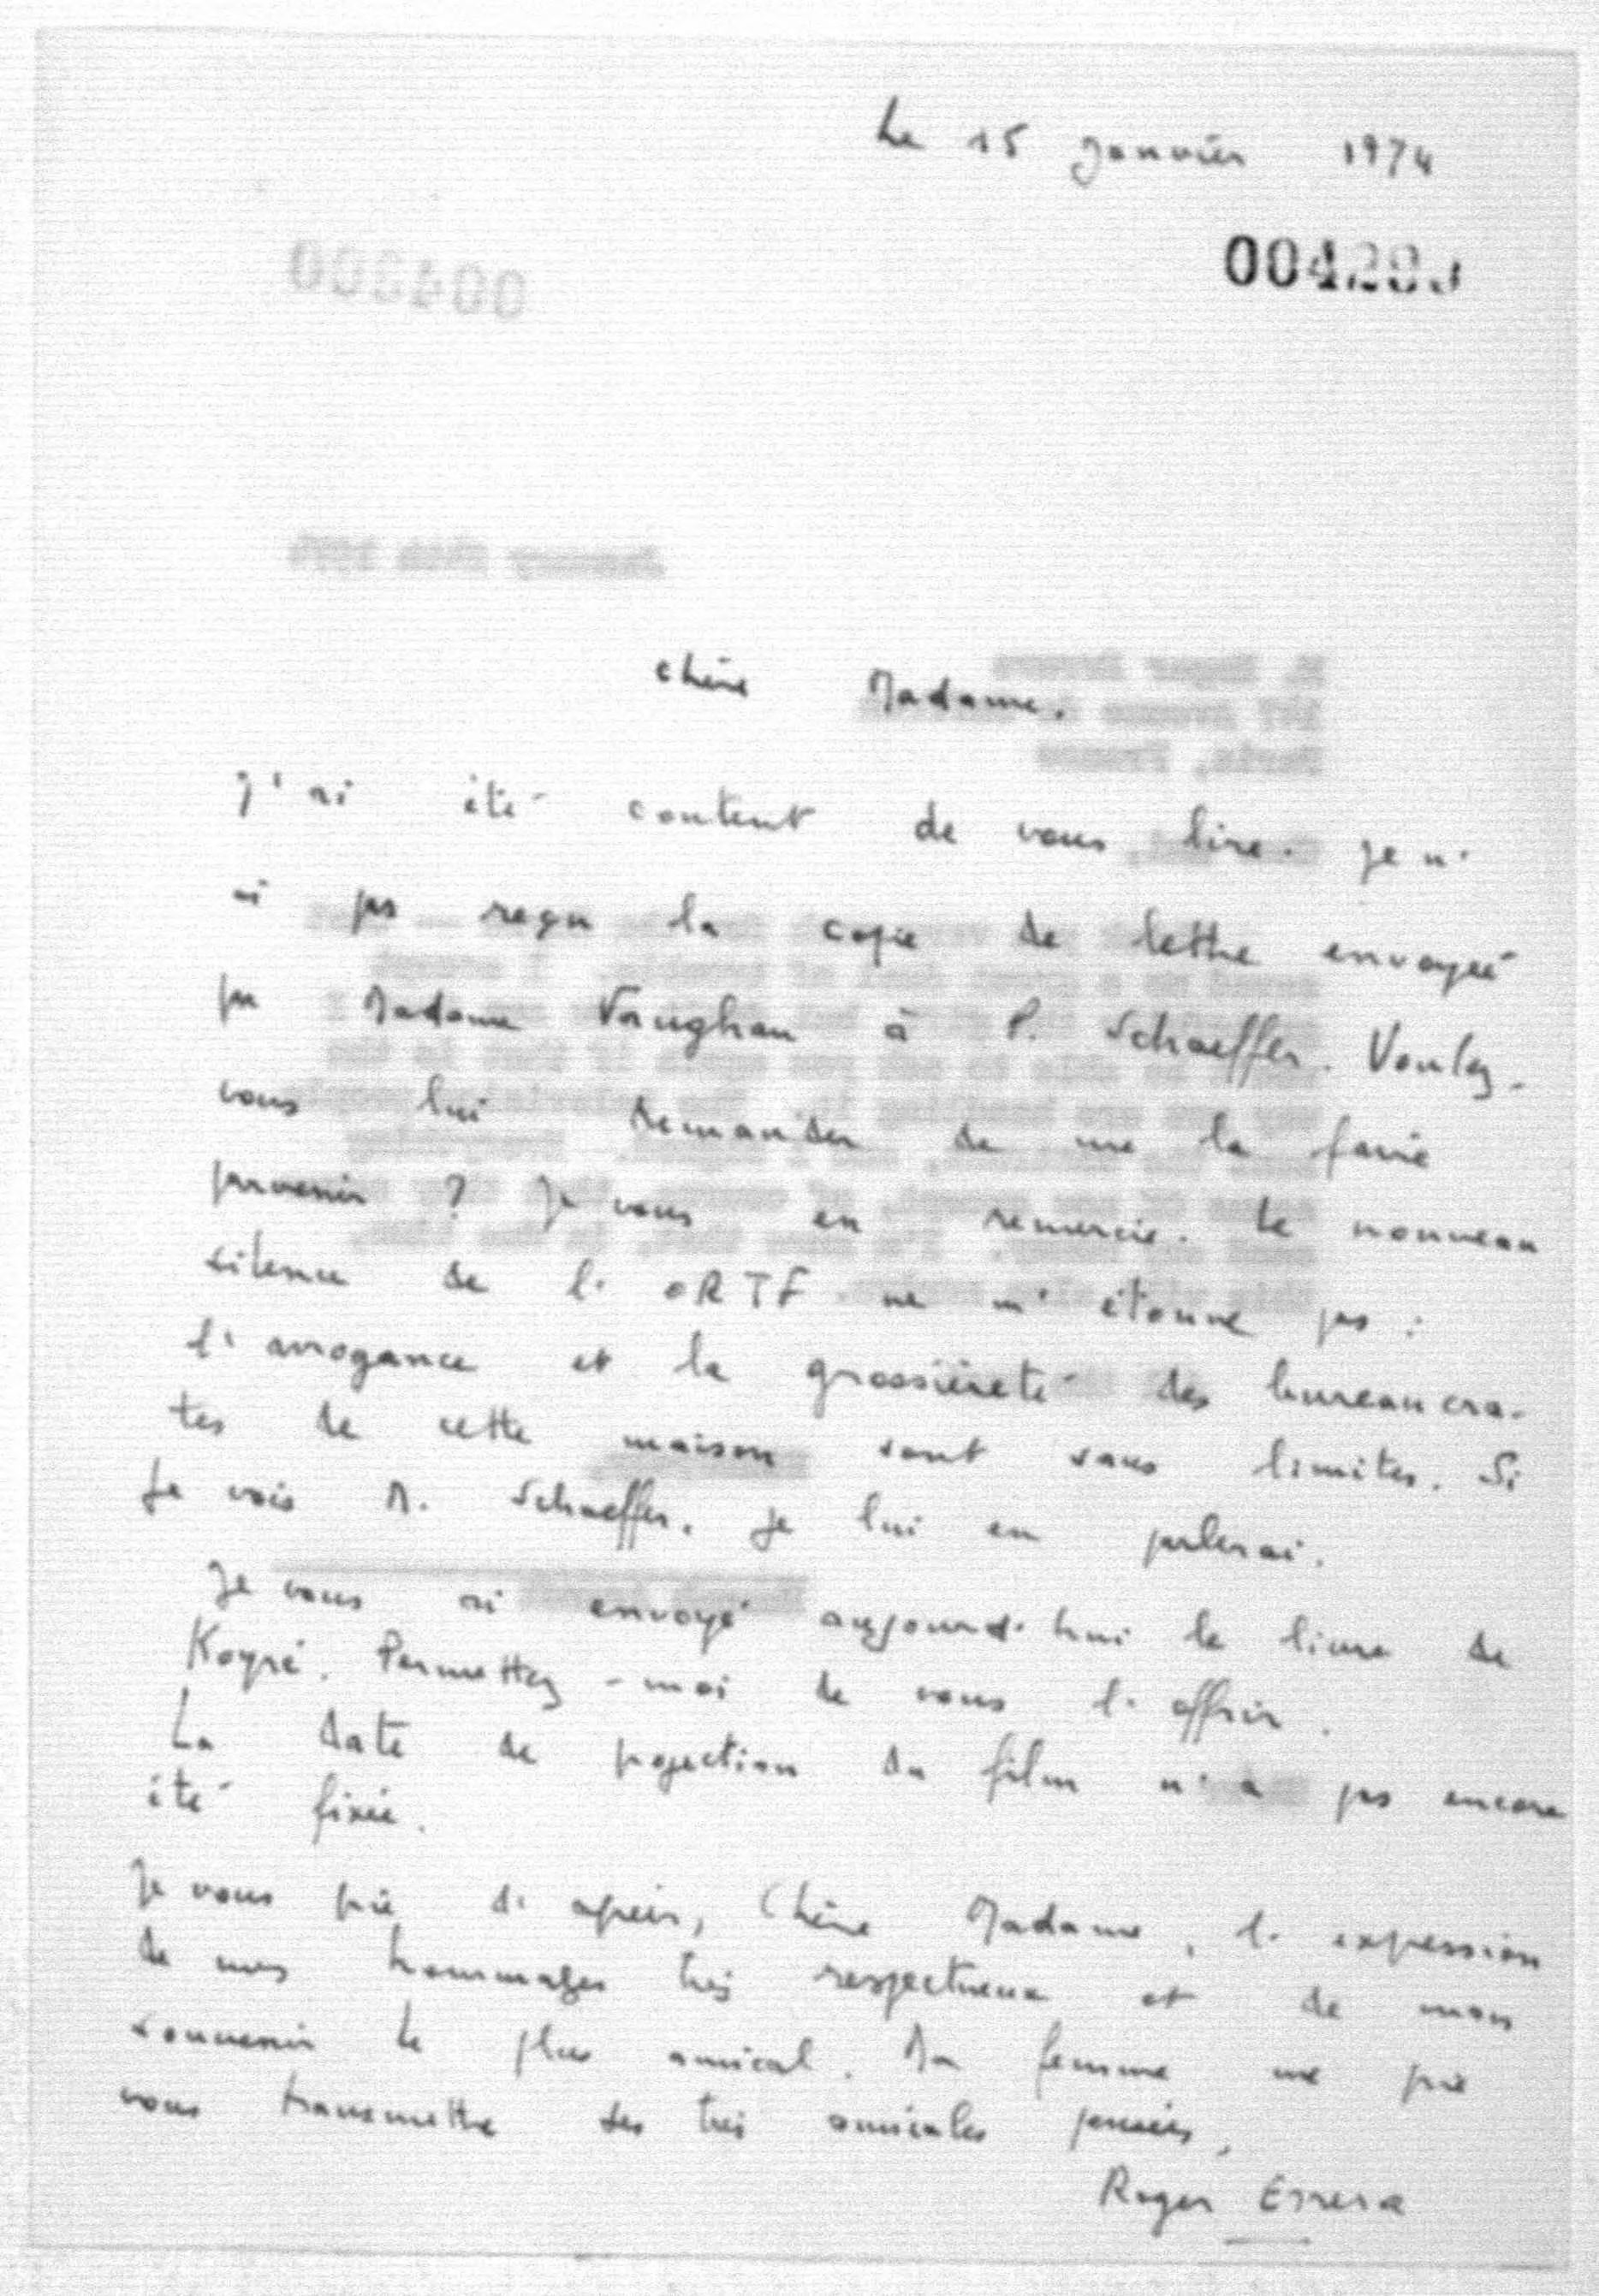 Le 15 Janvier 1974
Chère Madame,
J'ai été content de vous lire. Je n'
ai pas reçu la copie de lettre envoyée
par Madame Vaughan à P. Schaeffer. Voulez-
vous lui demander de me la faire
parvenir ? Je vous en remercie. Le nouveau
silence de l'ORTF ne m'étonne pas :
l'arrogance et la grossièreté des bureaucra-
tes de cette maison sont sans limites. Si
je vois M. Schaeffer, je lui en parlerai.
Je vous ai envoyé aujourd'hui le livre de
Koyré. Permettez-moi de vous l'offrir.
La date de projection du film n'a pas encore
été fixée.
Je vous prie d'agréer, Chère Madame, l'expression
de mes hommages très respectueux et de mon
souvenir le plus amical. Ma femme me prie
vous transmettre ses très amicales pensées,
Roger Errera